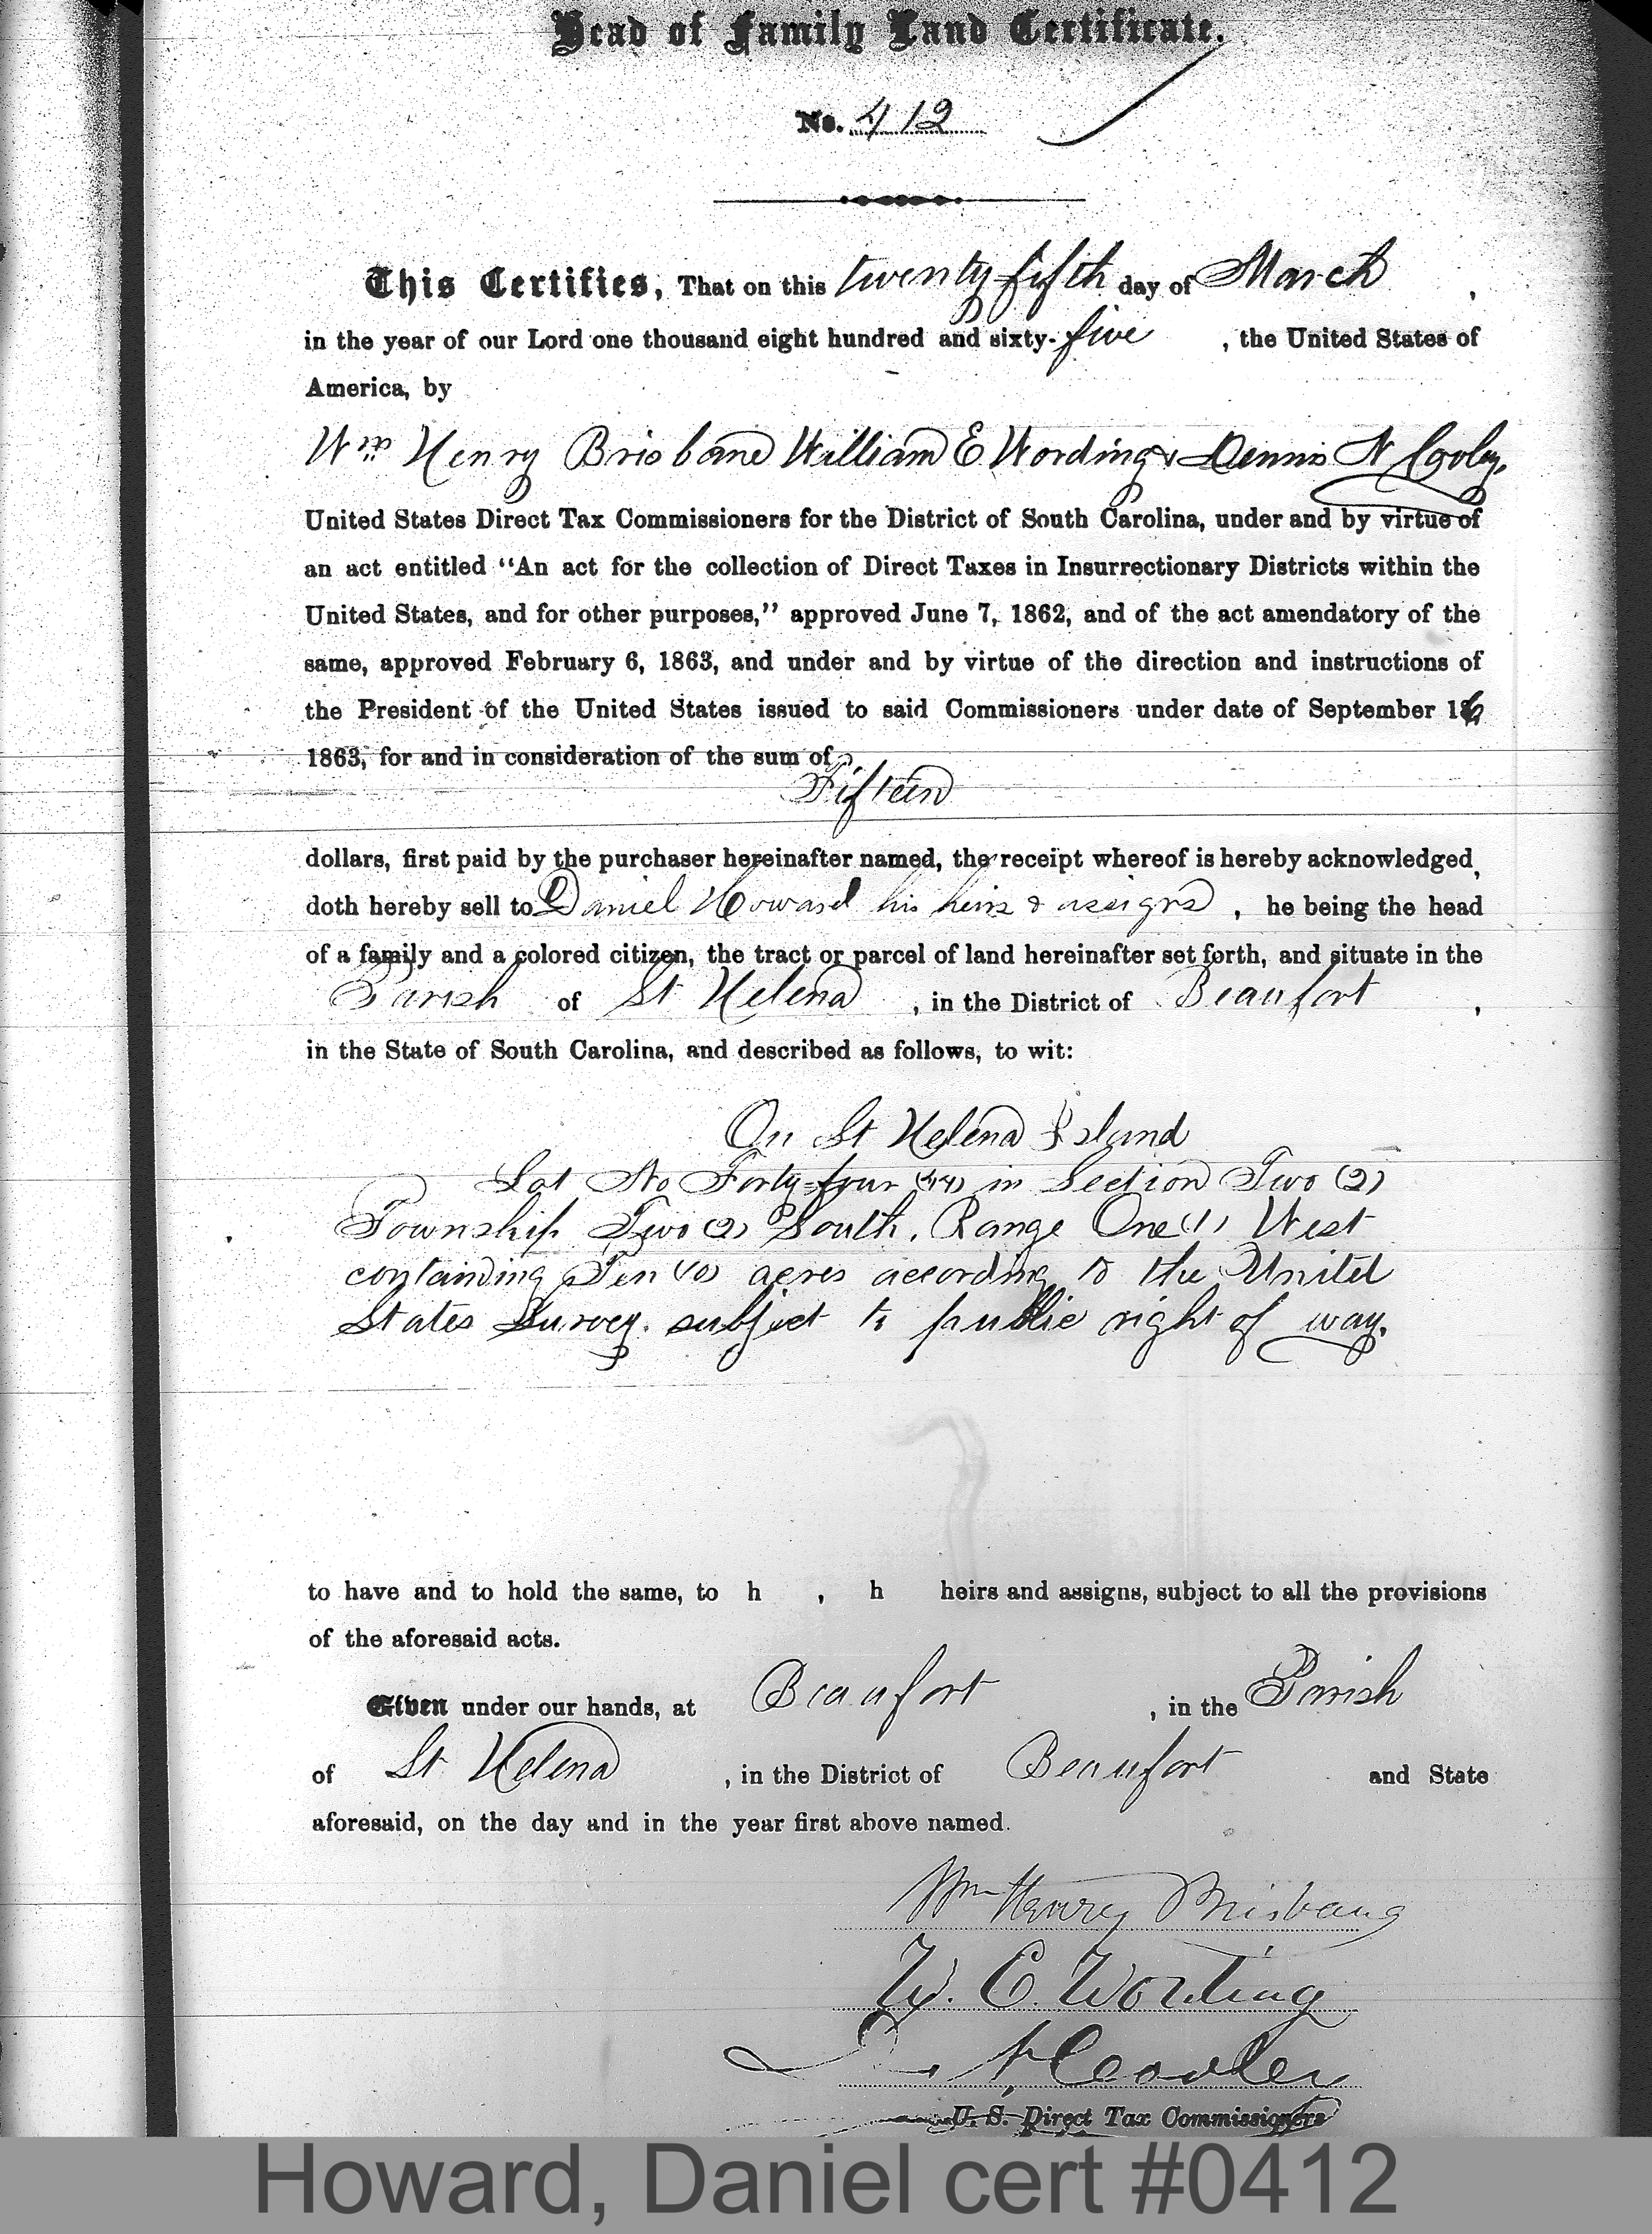 Head of Family Land Certificate.
No. 412
This Certifies, That on this twenty fifth day of March,
in the year of our Lord one thousand eight hundred and sixty-five, the United States of
America, by
Wm Henry Brisbane William E Wording & Dennis N Cooley,
United States Direct Tax Commissioners for the District of South Carolina, under and by virtue of
an act entitled "An act for the collection of Direct Taxes in Insurrectionary Districts within the
United States, and for other purposes," approved June 7, 1862, and of the act amendatory of the
same, approved February 6, 1863, and under and by virtue of the direction and instructions of
the President of the United States issued to said Commissioners under date of September 16
1863, for and in consideration of the sum of
Fifteen
dollars, first paid by the purchaser hereinafter named, the receipt whereof is hereby acknowledged,
doth hereby sell to Daniel Howard his heirs & assigns, he being the head
of a family and a colored citizen, the tract or parcel of land hereinafter set forth, and situate in the
Parish of St Helena, in the District of Beaufort,
in the State of South Carolina, and described as follows, to wit:
On St Helena Island
Lot No Forty-four (44) in Section Two (2)
Township Two (2) South, Range One (1) West
containing Ten (10) acres according to the United
States Survey. subject to public right of way.
to have and to hold the same, to h , h heirs and assigns, subject to all the provisions
of the aforesaid acts.
Given under our hands, at Beaufort, in the Parish
of St Helena, in the District of Beaufort and State
aforesaid, on the day and in the year first above named.
Wm Henry Brisbane
W. E. Wording
D. N. Cooley
U. S. Direct Tax Commissioners
Howard, Daniel cert #0412